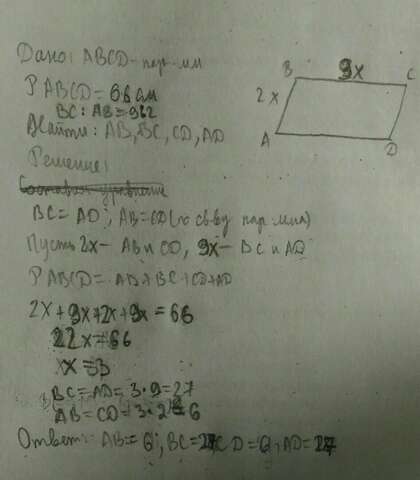 Дано: ABCD - пар-мм
P ABCD = 66 см
BC : AB = 9:2
Найти: AB, BC, CD, AD
Решение:
Составим уравнение
BC = AD, AB = CD (по св-ву пар-мма)
Пусть 2x - AB и CD, 9x - BC и AD
P ABCD = AB + BC + CD + AD
2x + 9x + 2x + 9x = 66
22x = 66
x = 3
BC = AD = 3 · 9 = 27
AB = CD = 3 · 2 = 6
Ответ: AB = 6; BC = 27 CD = 6, AD = 27
B 9x C
2x
A D